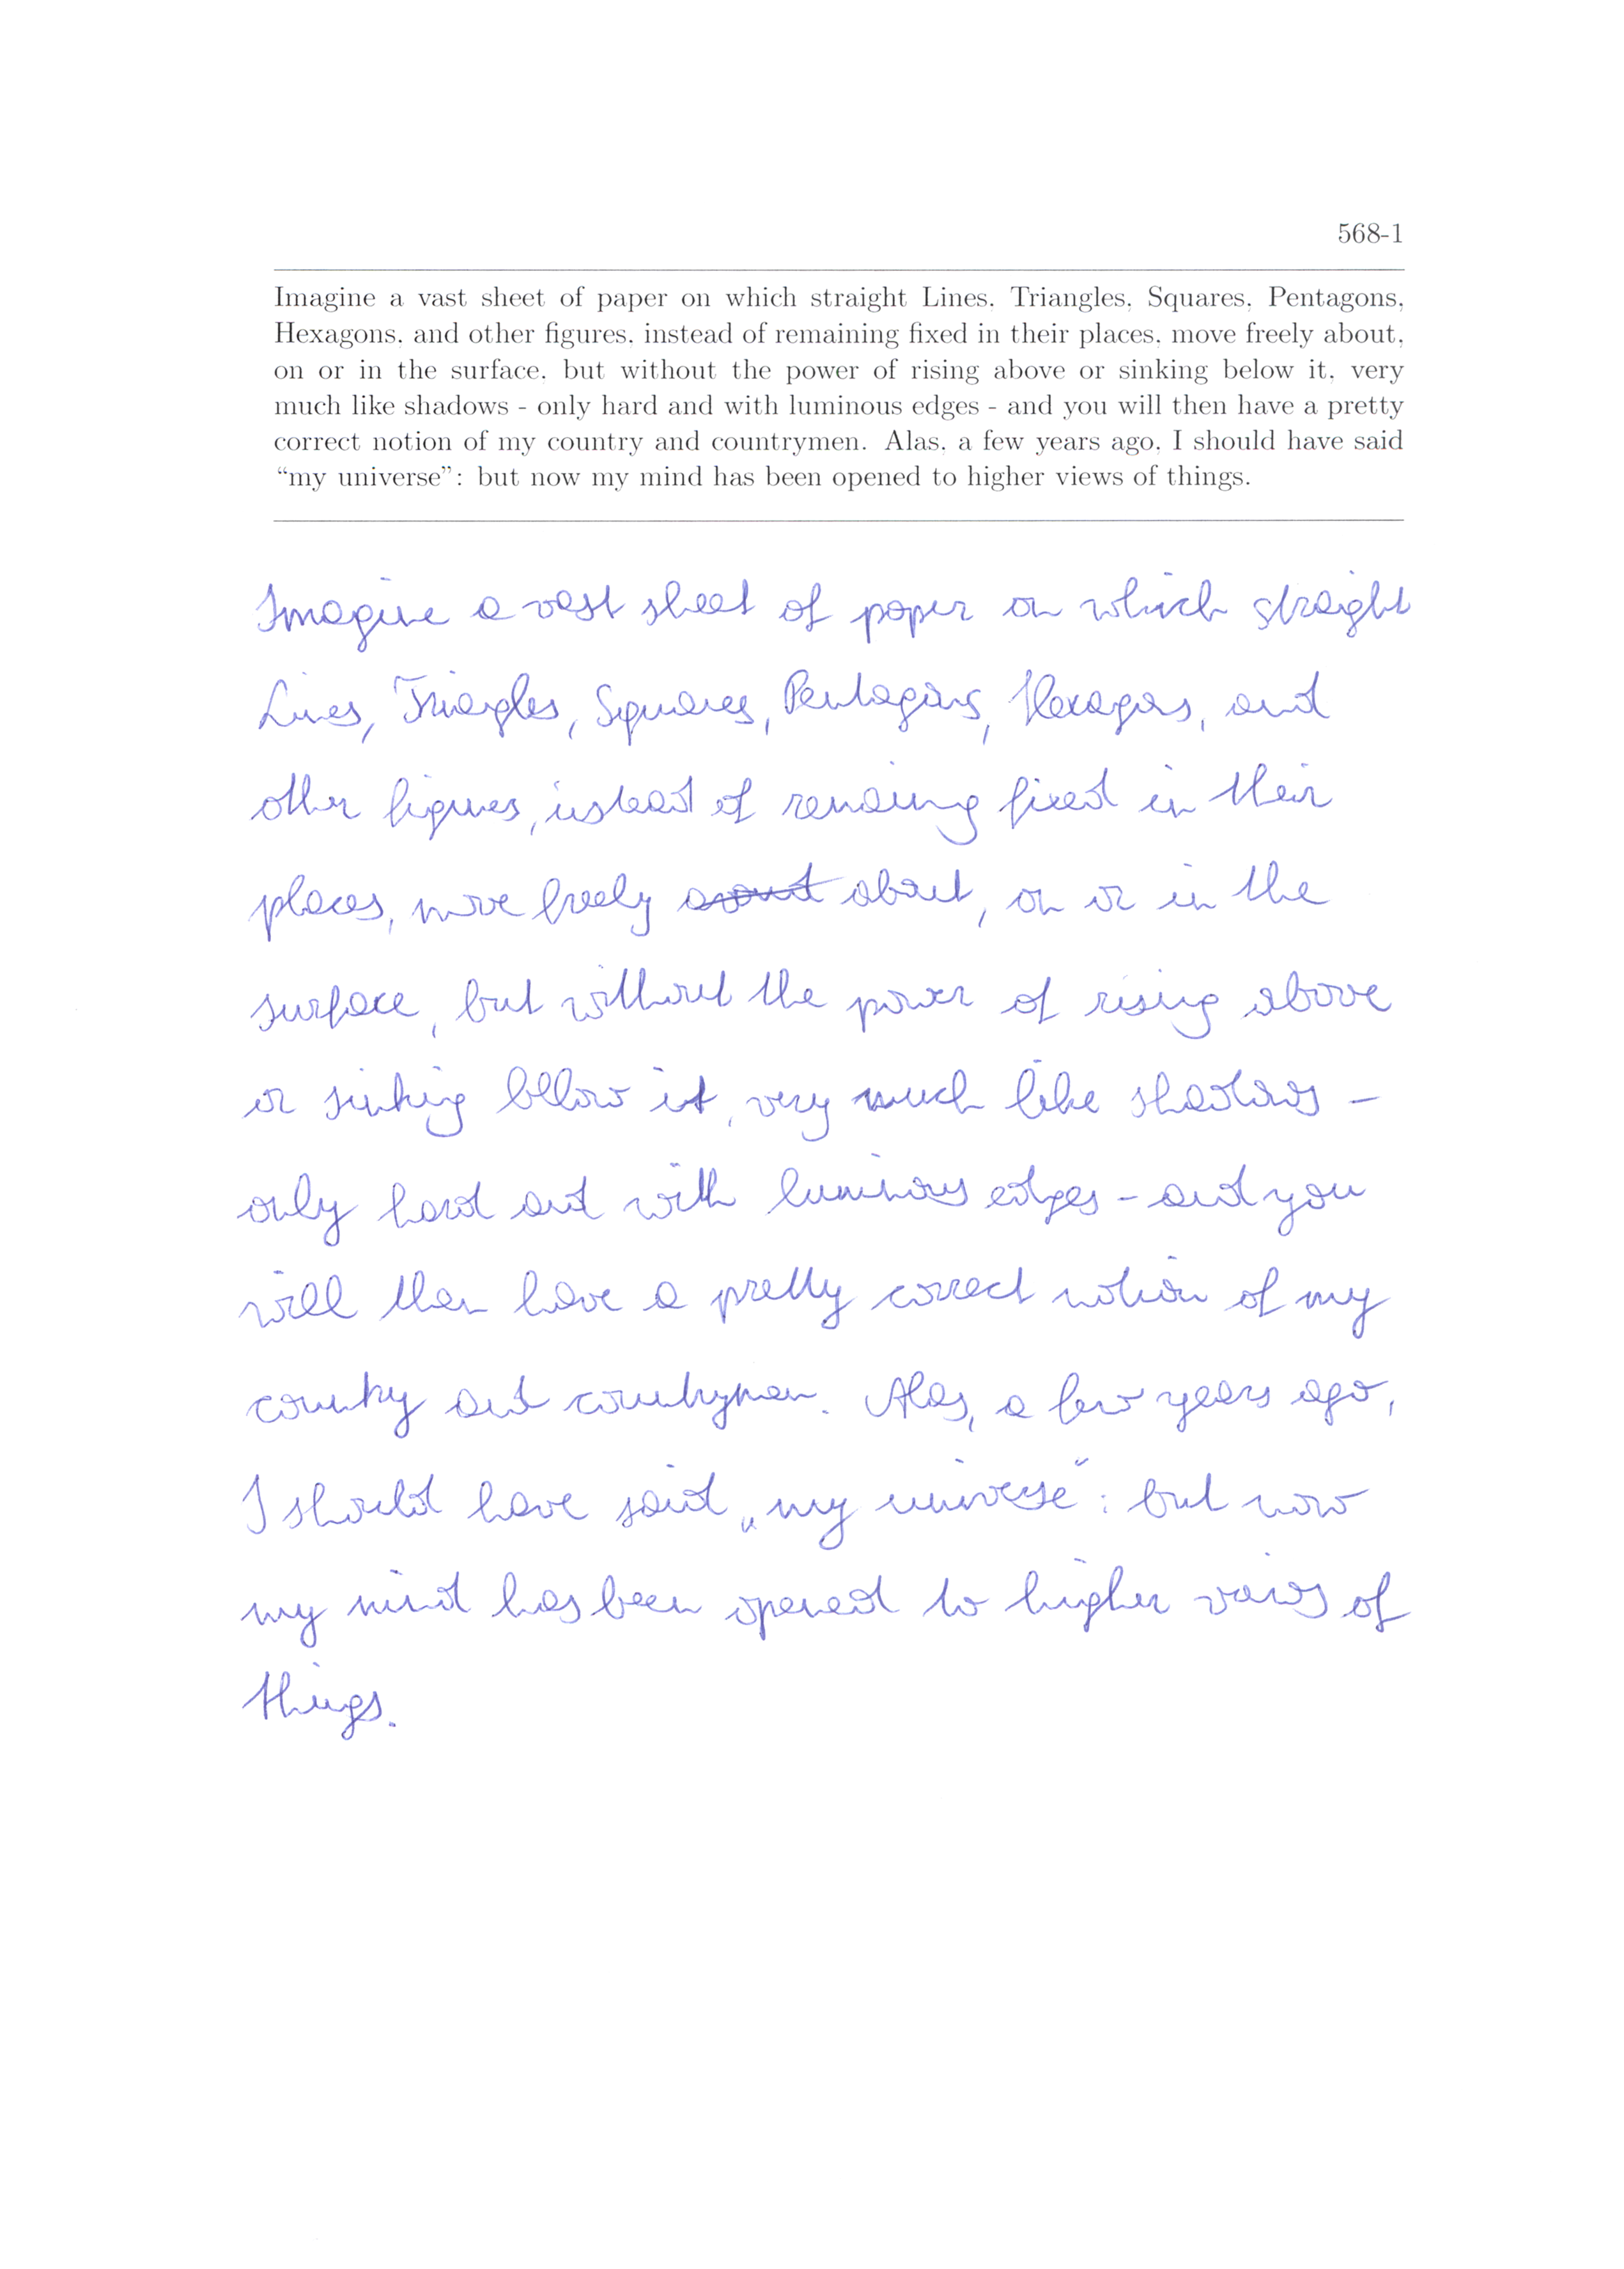 568-1
Imagine a vast sheet of paper on which straight Lines, Triangles, Squares, Pentagons,
Hexagons, and other figures, instead of remaining fixed in their places, move freely about,
on or in the surface, but without the power of rising above or sinking below it, very
much like shadows - only hard and with luminous edges - and you will then have a pretty
correct notion of my country and countrymen. Alas, a few years ago, I should have said
“my universe”: but now my mind has been opened to higher views of things.
Imagine a vast sheet of paper on which straight
Lines, Triangles, Squares, Pentagons, Hexagos, and
other figures, instead of remaining fixed in their
places, move freely about, on or in the
surface, but without the power of rising above
or sinking bellow it, very much like shadows -
only hard and with luminous edges - and you
will then have a pretty correct notion of my
country and countrymen. Alas, a few years ago,
I should have said „my universe“: but now
my mind has been opened to higher vaiws of
things.